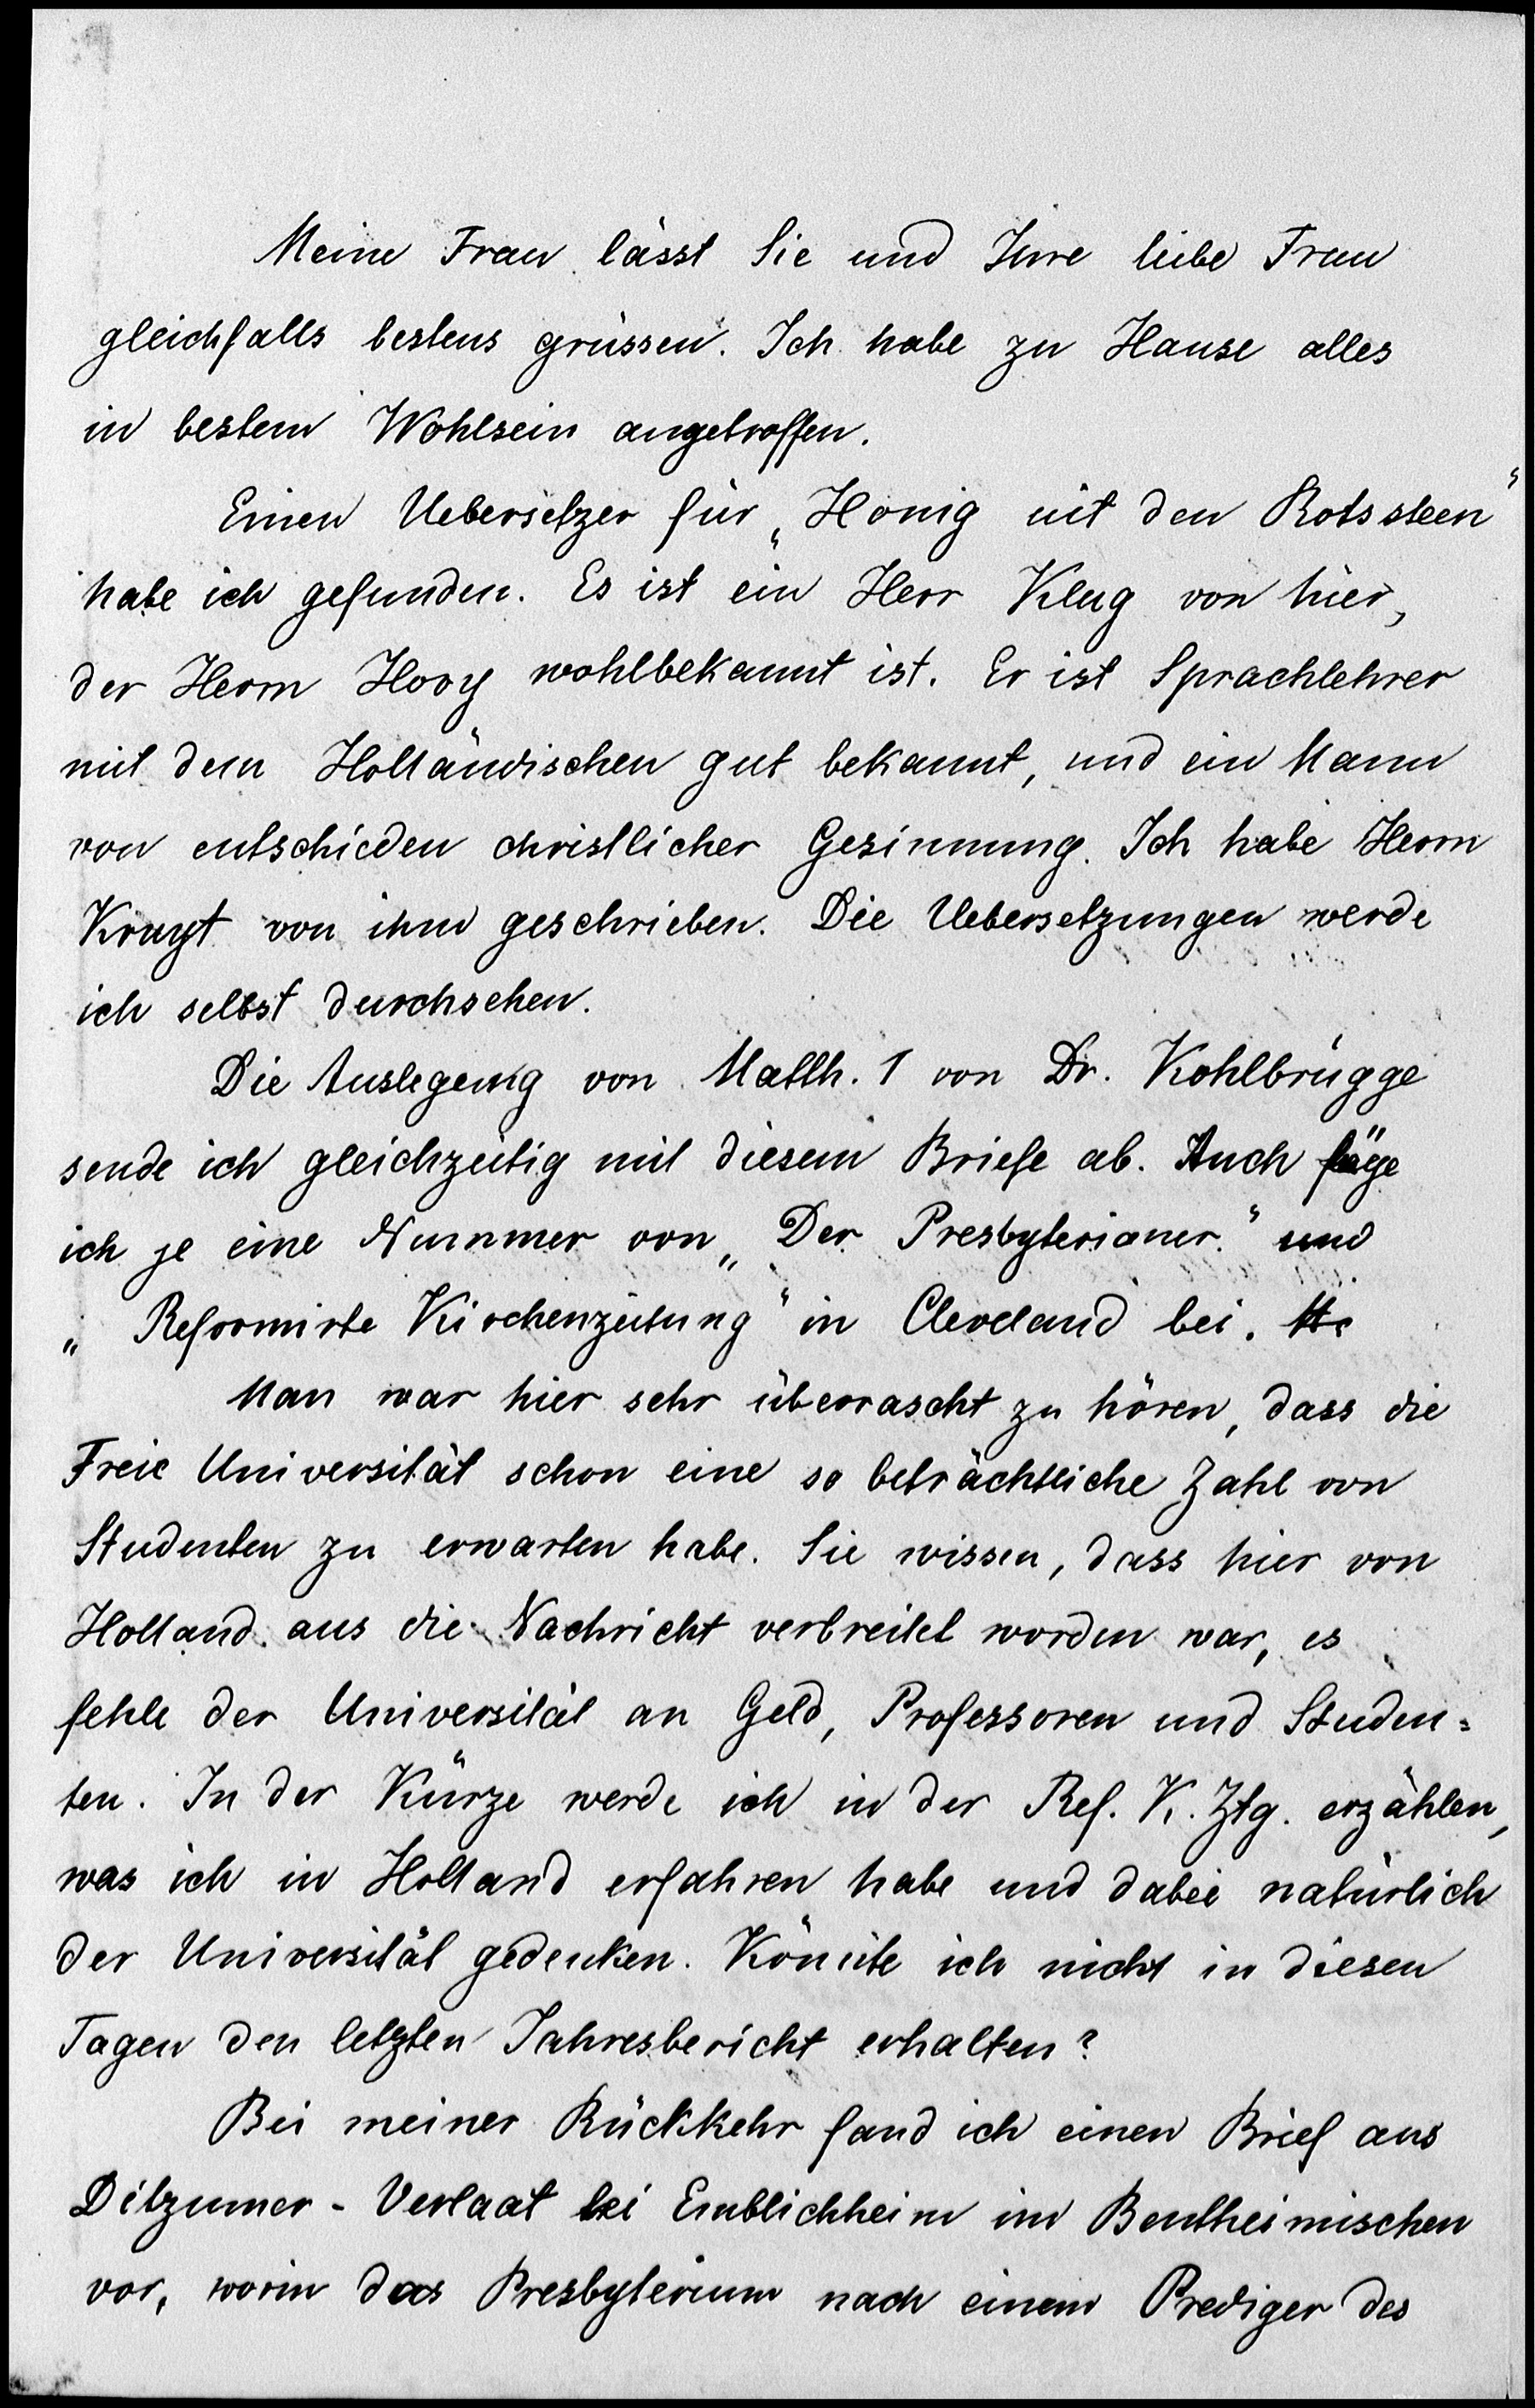 Meine Frau lässt Sie und Ihre liebe Frau
gleichfalls bestens grüssen. Ich habe zu Hause alles
in bestem Wohlsein angetroffen.
Einen Uebersetzer für „Honig uit den Rotssteen“
habe ich gefunden. Es ist ein Herr Klug von hier,
der Herrn Hovy wohlbekannt ist. Er ist Sprachlehrer
mit dem Holländischen gut bekannt, und ein Mann
von entschieden christlicher Gesinnung. Ich habe Herrn
Kruyt von ihm geschrieben. Die Uebersetzungen werde
ich selbst durchsehen.
Die Auslegung von Matth. 1 von Dr. Kohlbrügge
sende ich gleichzeitig mit diesem Briefe ab. Auch füge
ich je eine Nummer von „Der Presbyterianer“ und
„Reformirte Kirchenzeitung“ in Cleveland bei.
Man war hier sehr überrascht zu hören, dass die
Freie Universität schon eine so beträchtliche Zahl von
Studenten zu erwarten habe. Sie wissen, dass hier von
Holland aus die Nachricht verbreitet worden war, es
fehle der Universität an Geld, Professoren und Studen=
ten. In der Kürze werde ich in der Ref. K. Ztg. erzählen,
was ich in Holland erfahren habe und dabei natürlich
der Universität gedenken. Könnte ich nicht in diesen
Tagen den letzten Jahresbericht erhalten?
Bei meiner Rückkehr fand ich einen Brief aus
Ditzumer-Verlaat bei Emblichheim im Bentheimischen
vor, worin das Presbyterium nach einem Prediger des